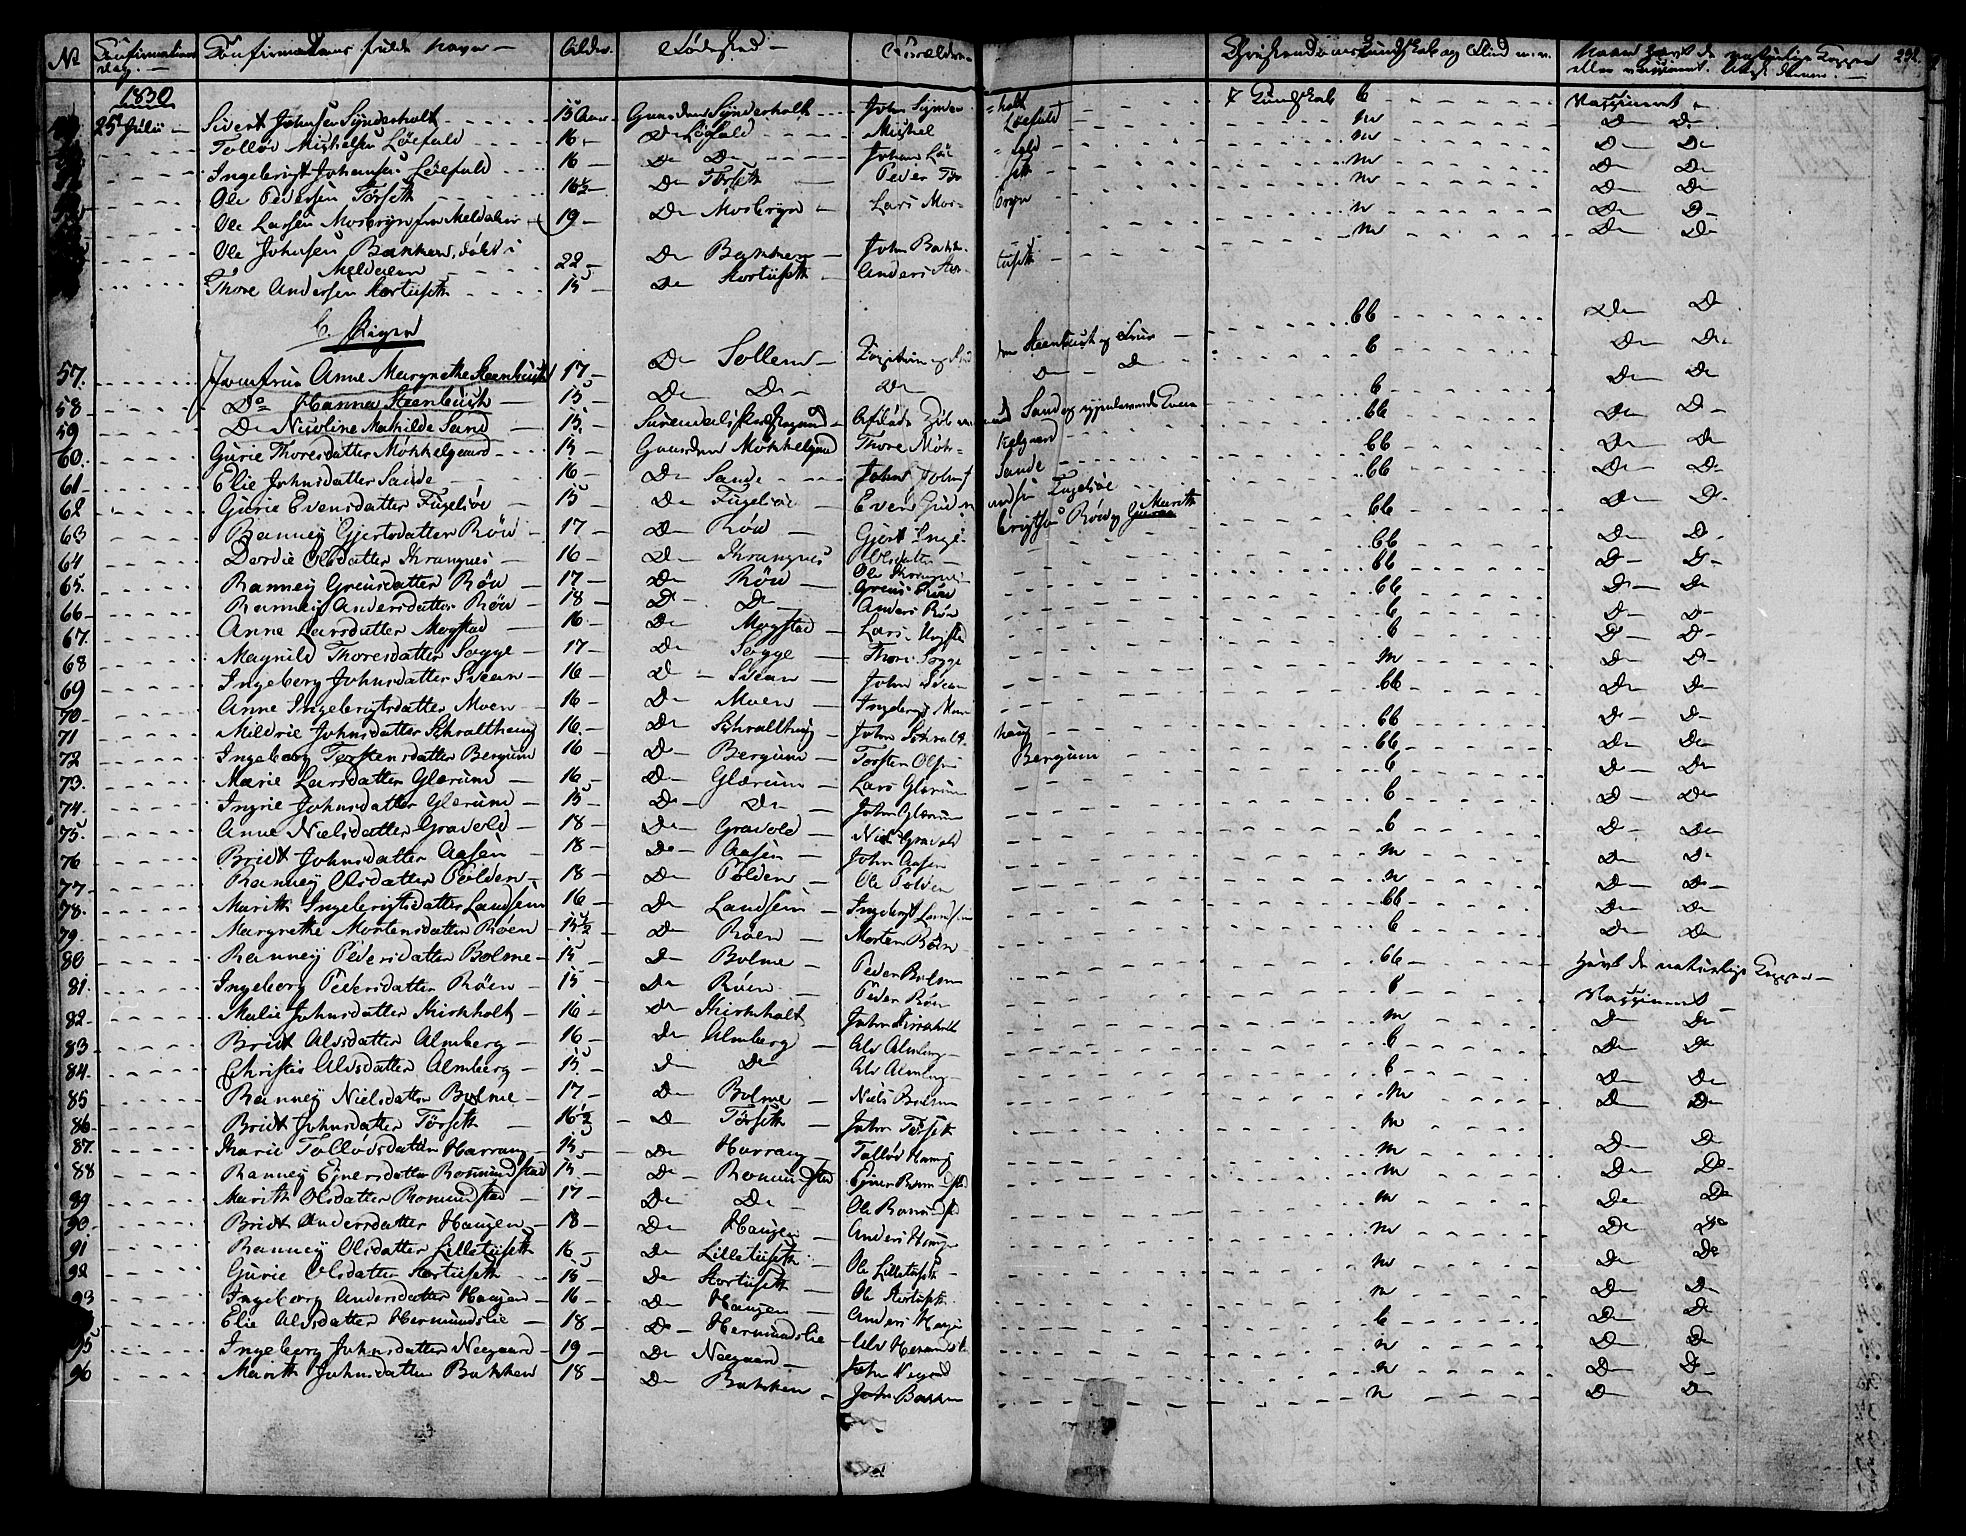 No Confirmations dag. Confirmandens fulde Navn Alder Fødested Forældre Christendoms Kundskab og Flid m.v. 232
1830
25de Julii Sivert Johnsen Synderholt 15 Aar Gaarden Synderholt John Synderholt Kundskab b Vaccineret
Tolløv Michelsen Löefald 16 Do Löefald Michel Löefald m Do Do
Ingebrigt Johansen Löefald 16 Do Do Johan Löefald m Do Do
Ole Pedersen Törseth 16½ Do Törseth Peder Törseth m Do Do
Ole Larsen Mosbryn fra Meldalen 19 Do Mosbryn Lars Mosbryn m Do Do
Ole Johnsen Bakken, født i Meldalen 22 Do Bakken John Bakken Do Do
Thore Andersen Stortuseth 15 Do Stortuseth Anders Stortuseth m Do Do
Piger
57. Jomfrue Anne Margrethe Steenbuch 17 Do Sollem Do Do
58 Do Hanna Steenbuch 15 Do Do Do b Do Do
59 Do Nicoline Mathilde Sand 15 b Do Do
60. Gurie Thoresdatter Mökkelgaard 15 Gaarden Mökkelgaard Thore Mökkelgaard bb Do Do
61 Elie Johnsdatter Sande 16 Do Sande John Sande bb Do Do
62 Gurie Evensdatter Fugelsöe 15 Do Fugelsöe Even Fugelsöe bb Do Do
63 Ranney Gjertsdatter Röv 17 Do Röv Gjert Ingebrigtsen Röv og Marith Olsdatter bb Do Do
64 Dordie Olsdatter Krangnes 16 Do Krangnes Ole Krangnes bb Do Do
65. Ranney Greusdatter Röv 17 Do Röv Greus Röv bb Do Do
66 Ranney Andersdatter Röv 18 Do Do Anders Röv bb Do Do
67. Anne Larsdatter Mogstad 16 Do Mogstad Lars Mogstad b Do Do
68 Magnild Thoresdatter Sogge 17 Do Sogge Thore Sogge b Do Do
69 Ingeborg Johnsdatter Svean 16 Do Svean John Svean m Do Do
70 Anne Ingebrigtsdatter Moen 16 Do Moen Ingebrigt Moen bb Do Do
71 Mildrie Johnsdatter Skralthaug 16 Do Skralthaug John Skralthaug bb Do Do
72 Ingeborg Torstensdatter Bergum 16 Do Bergum Torsten Olsen Bergum bb Do Do
73. Marie Larsdatter Glærum 16 Do Glærum Lars Glærum b Do Do
74. Ingrie Johnsdatter Glærum 15 Do Do John Glærum b Do Do
75. Anne Nielsdatter Gravold 18 Do Gravold Niels Gravold b Do Do
76 Bridt Johnsdatter Aasen 18 Do Aasen John Aasen m Do Do
77 Ranney Olsdatter Polden 18 Do Polden Ole Polden m Do Do
78. Marith Ingebrigtsdatter Landsem 16 Do Landsem Ingebrigt Landsem bb Do Do
79. Margrethe Mortensdatter Röen 15½ Do Röen Morten Röen b Do Do
80 Ranney Pedersdatter Bolme 15 Do Bolme Peder Bolme bb Havt de naturlige Kopper
81. Ingeborg Pedersdatter Röen 15 Do Röen Peder Röen b Vaccineret
82 Malie Johnsdatter Kirkholt 16 Do Kirkholt John Kirkholt m Do Do
83 Bridt Alvsdatter Almberg 16 Do Almberg Alv Almberg b Do Do
84. Christie Alvsdatter Almberg 15 Do Do Alv Almberg b Do Do
85 Ranney Nielsdatter Bolme 17 Do Bolme Niels Bolme m Do Do
86 Bridt Johnsdatter Törseth 16½ Do Törseth John Törseth m Do Do
87. Marie Tollövsdatter Harrang 15 Do Harrang Tollöv Harrang m Do Do
88 Ranney Ejnersdatter Romundstad 15 Do Romundstad Ejner Romundstad m Do Do
89 Marith Olsdatter Romundstad 17 Do Do Ole Romundstad m Do Do
90. Bridt Andersdatter Haugen 18 Do Haugen Anders Haugen m Do Do
91 Ranney Olsdatter Lilletuseth 16 Do Lilletuseth Ole Lilletuseth m Do Do
92 Gurie Olsdatter Stortuseth 15 Do Stortuseth Ole Stortuseth m Do Do
93 Ingeborg Andersdatter Haugen 16 Do Haugen Anders Haugen b Do Do
Elie Alvsdatter Hermundslie 18 Do Hermundslie Alv Hermundslie m Do Do
95 Ingeborg Johnsdatter Neegaard 19 Do Neegaard John Neegaard m Do Do
96 Marith Johnsdatter Bakken 18 Do Bakken John Bakken m Do Do